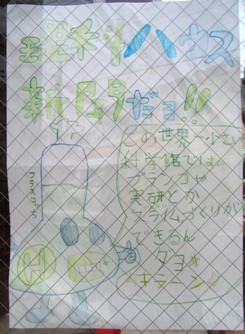 理科ハウス
新月号だョ!!
この世界一小さい
科学館では
ブランコや
実験とか
スライムづくりが
できるん
ダヨ
キラーン
フラスコっち
H